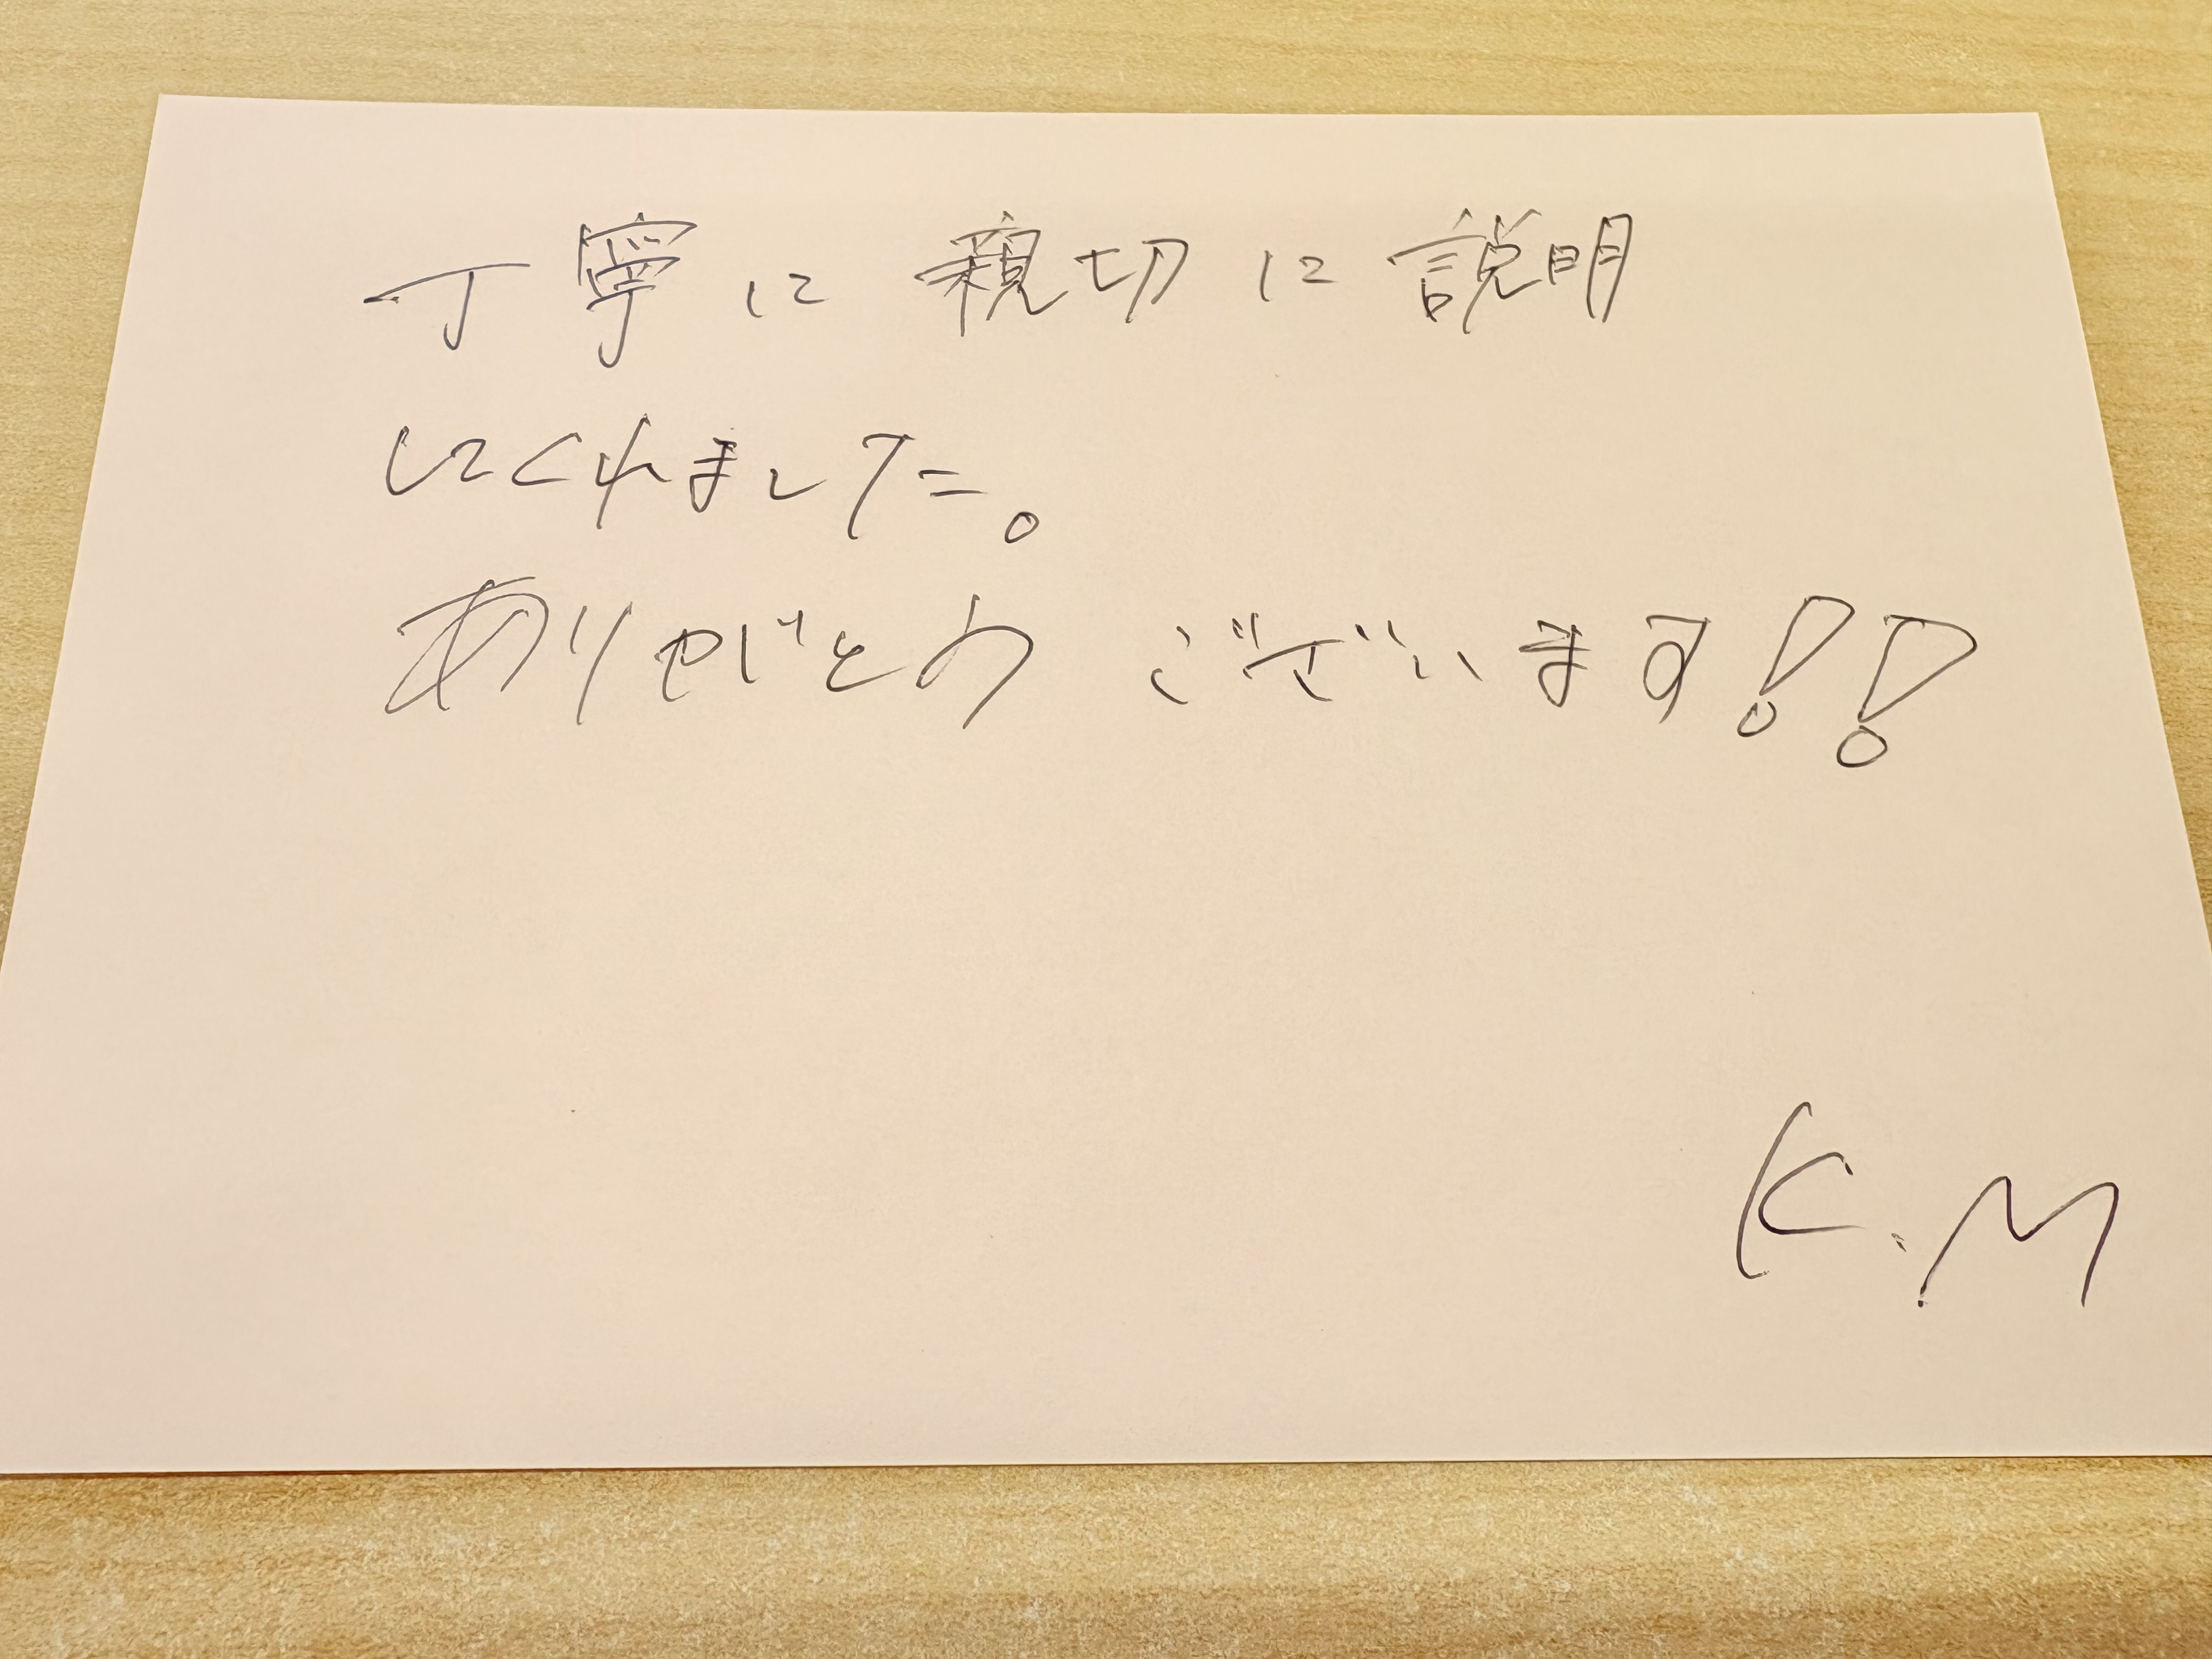 丁寧に 親切に説明
してくれました。
ありがとう ございます!!
K.M